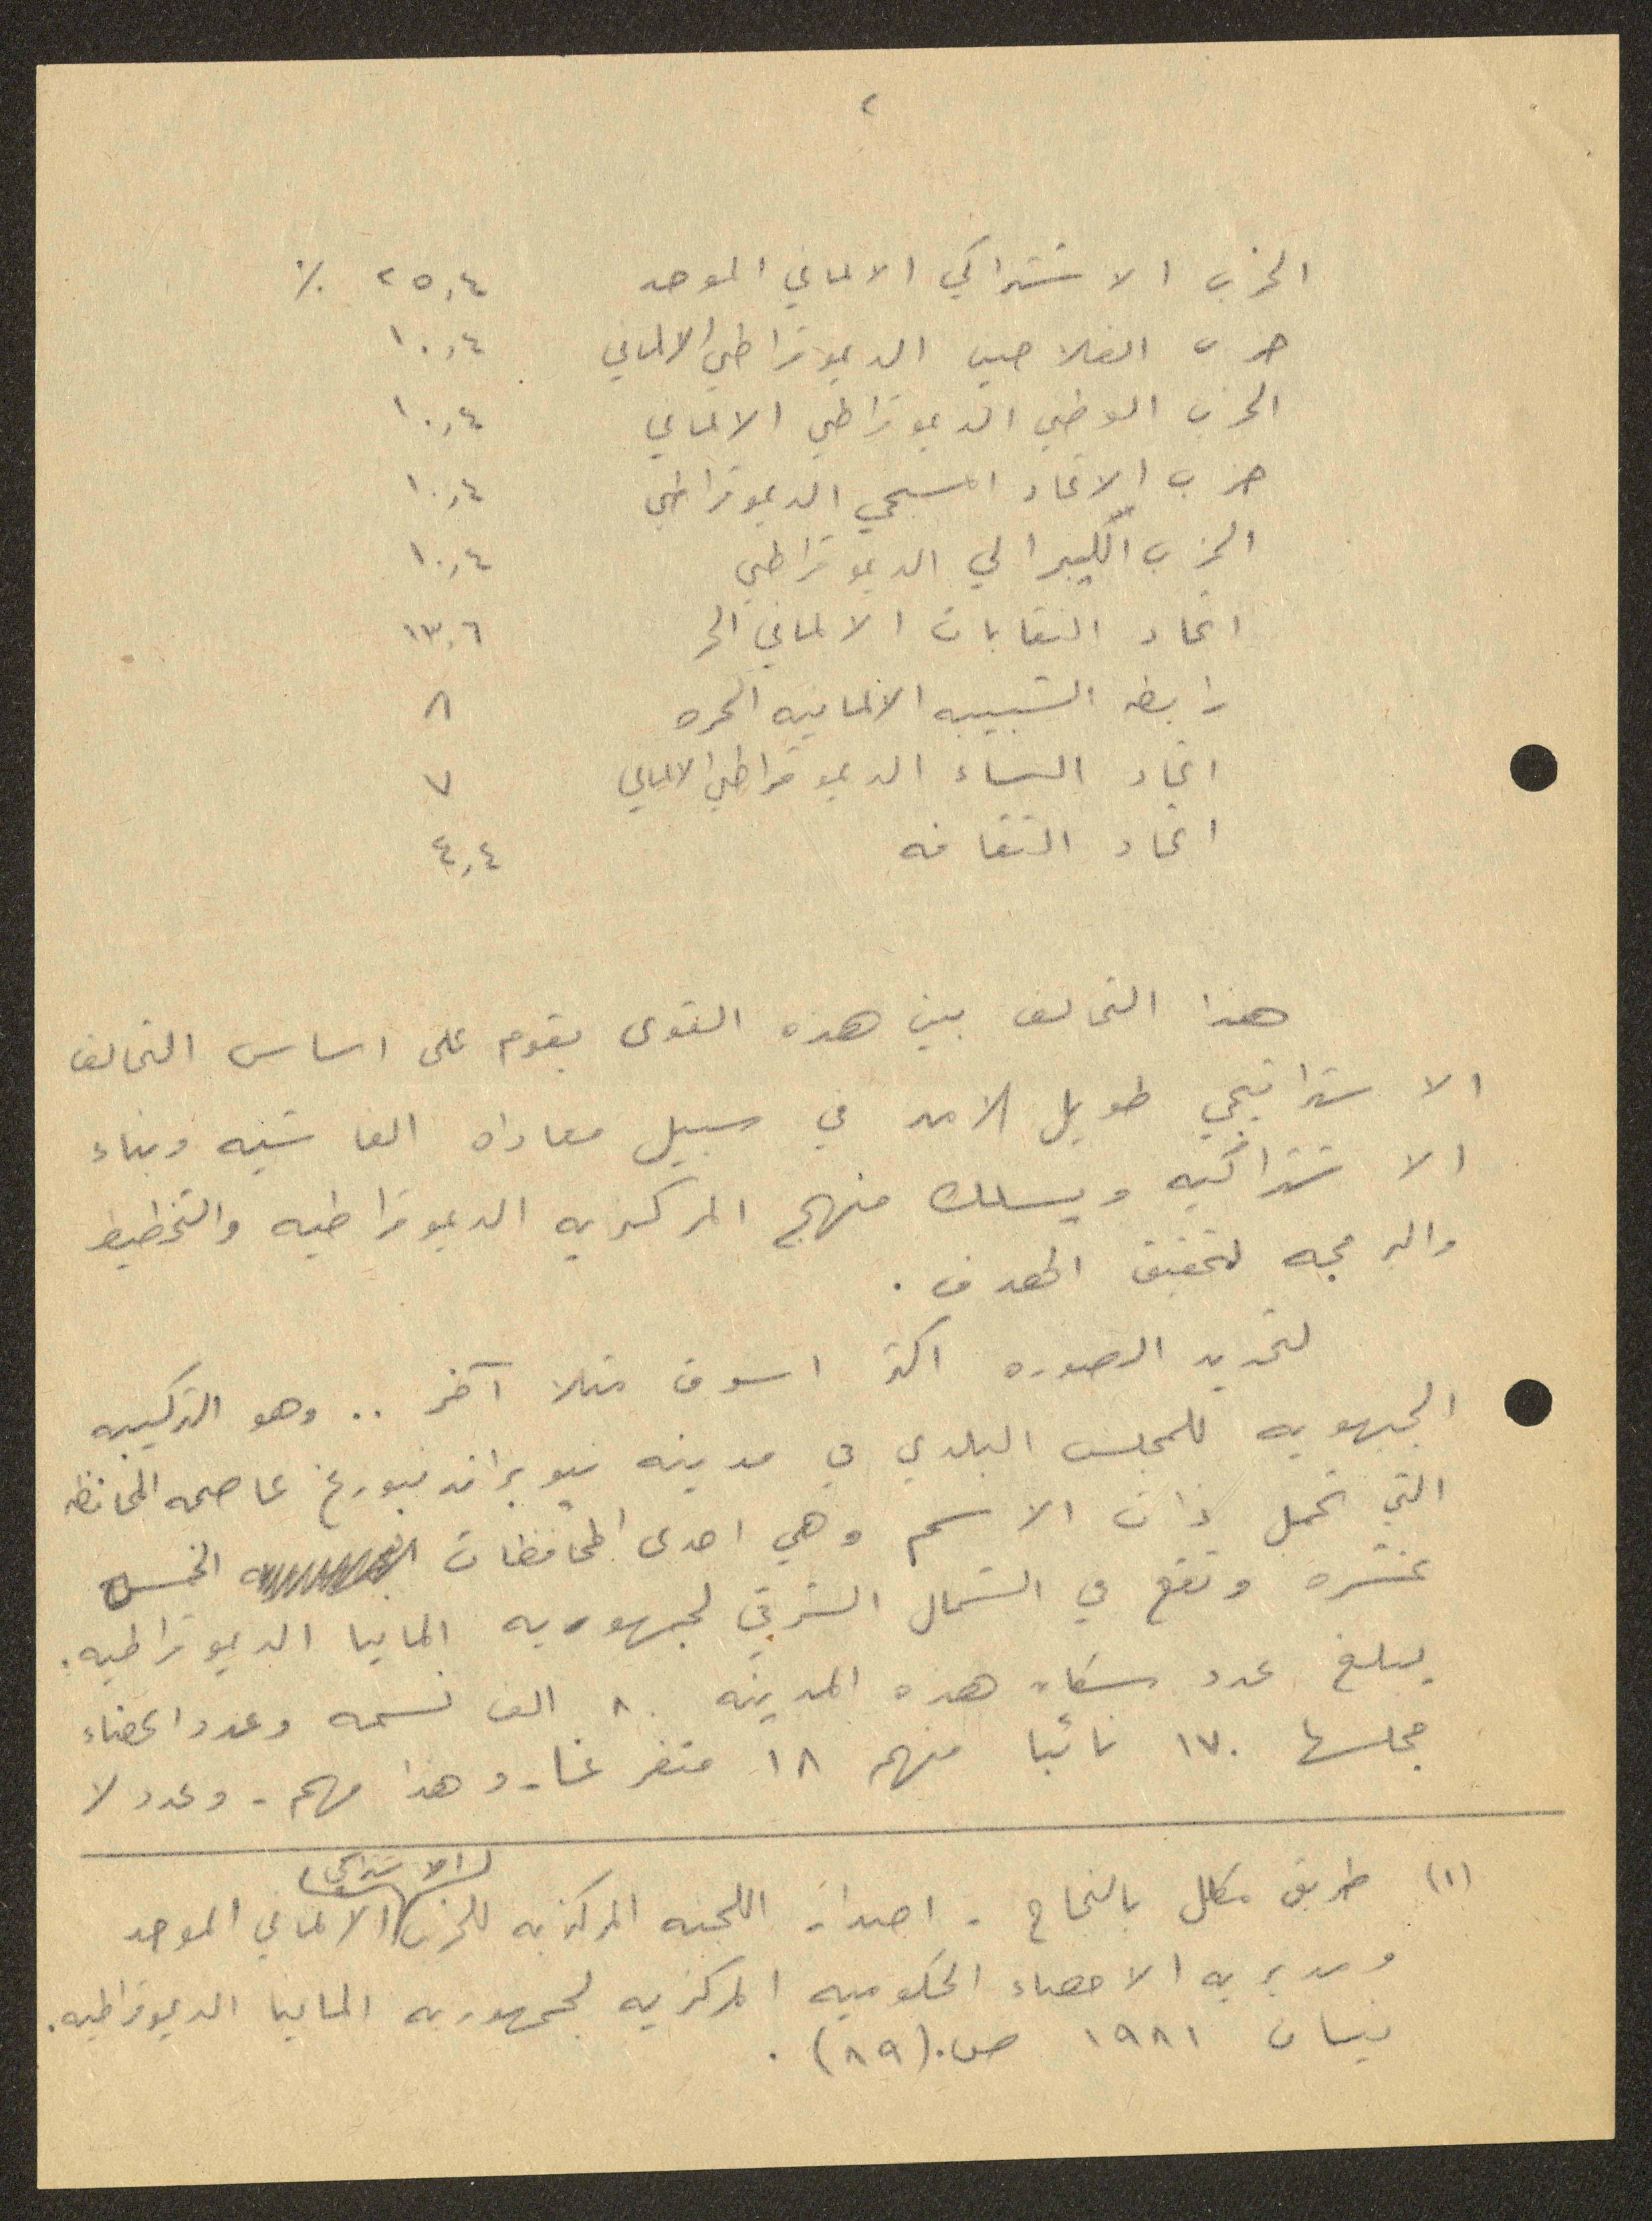 ٢
الحزب الاشتراكي الالماني الموحد ٢٥,٤ ٪
حزب الفلاحين الديموقراطي الالماني ١٠,٤
الحزب الوطني الديموقراطي الالماني ١٠,٤
حزب الاتحاد المسيحي الديموقراطي ١٠,٤
الحزب الليبرالي الديموقراطي ١٠,٤
اتحاد النقابات الالماني الحر ١٣,٦
رابطه الشبيبه الالمانيه الحره ٨
اتحاد النساء الديموقراطي الالماني ٧
اتحاد الثقافه ٤,٤
هذا التحالف بين هذه القوى يقوم على اساس التحالف
الاستراتيجي طويل الامد في سبيل معاداه الفاشيه وبناء
الاشتراكيه ويسلك منهج المركزيه الديموقراطيه والتخطيط
والبرمجه لتحقيق الهدف .
لتحديد الصوره اكثر اسوق مثلا آخر .. وهو التركيبه
الجبهويه للمجلس البلدي في مدينه نيوبراندنبورغ عاصمه المحافظه
التي تحمل ذات الاسم وهي احدى المحافظات الخمس
عشره وتقع في الشمال الشرقي لجمهوريه المانيا الديموقراطيه .
يبلغ عدد سكان هذه المدينه ٨٠ الف نسمه وعدد اعضاء
مجلسها ١٧٠ نائبا منهم ١٨ متفرغا - وهذا مهم - وعدد لا
(١) طريق مكلل بالنجاح - اصدار اللجنه المركزيه للحزب الاشتراكي الالماني الموحد
ومديريه الاحصاء الحكوميه المركزيه لجمهوريه المانيا الديموقراطيه .
نيسان ١٩٨١ ص. (٨٩) .